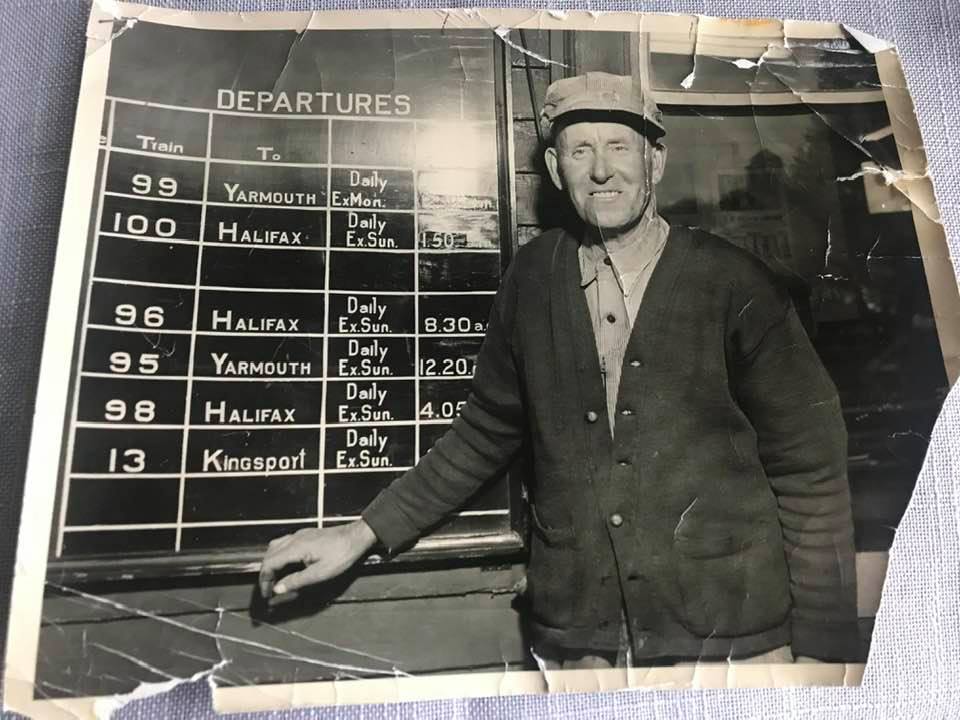 DEPARTURES
e Train To
99 YARMOUTH Daily ExMon.
100 HALIFAX Daily Ex.Sun. 1.50
96 HALIFAX Daily Ex.Sun. 8.30 a.
95 YARMOUTH Daily Ex.Sun. 12.20
98 HALIFAX Daily Ex.Sun. 4.05
13 Kingsport Daily Ex.Sun.